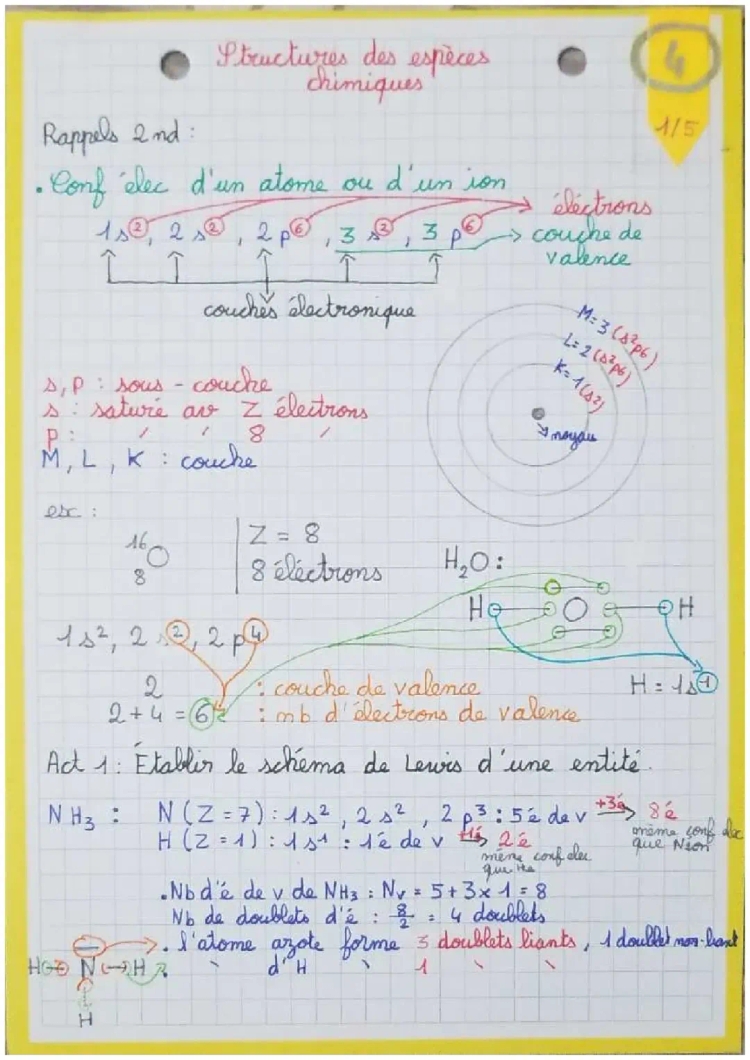 Structures des espèces
chimiques
4
1/5
Rappels 2nd :
. Conf élec d'un atome ou d'un ion
1s², 2s², 2p⁶, 3s², 3p⁶
électrons
couche de
valence
couches électronique
M=3 (s²p⁶)
L=2 (s²p⁶)
K=1 (s²)
noyau
s, p : sous-couche
s : saturé av 2 électrons
p : ′ ′ 8 ′
M, L, K : couche
ex :
16
O
8
Z = 8
8 électrons
H₂O :
H O H
H = 1s¹
1s², 2s², 2p⁴
2 : couche de valence
2+4 = 6 : nb d'électrons de valence
Act 1 : Établir le schéma de Lewis d'une entité.
NH₃ : N (Z=7) : 1s², 2s², 2p³ : 5é de v +3é 8é
même conf élec
que Néon
H (Z=1) : 1s¹ : 1é de v +1é 2é
même conf élec
que He
. Nb d'é de v de NH₃ : Nv = 5+3×1 = 8
Nb de doublets d'é : 8/2 = 4 doublets
. l'atome azote forme 3 doublets liants, 1 doublet non-liant
. \ d'H \ 1 \ \
H N H
H